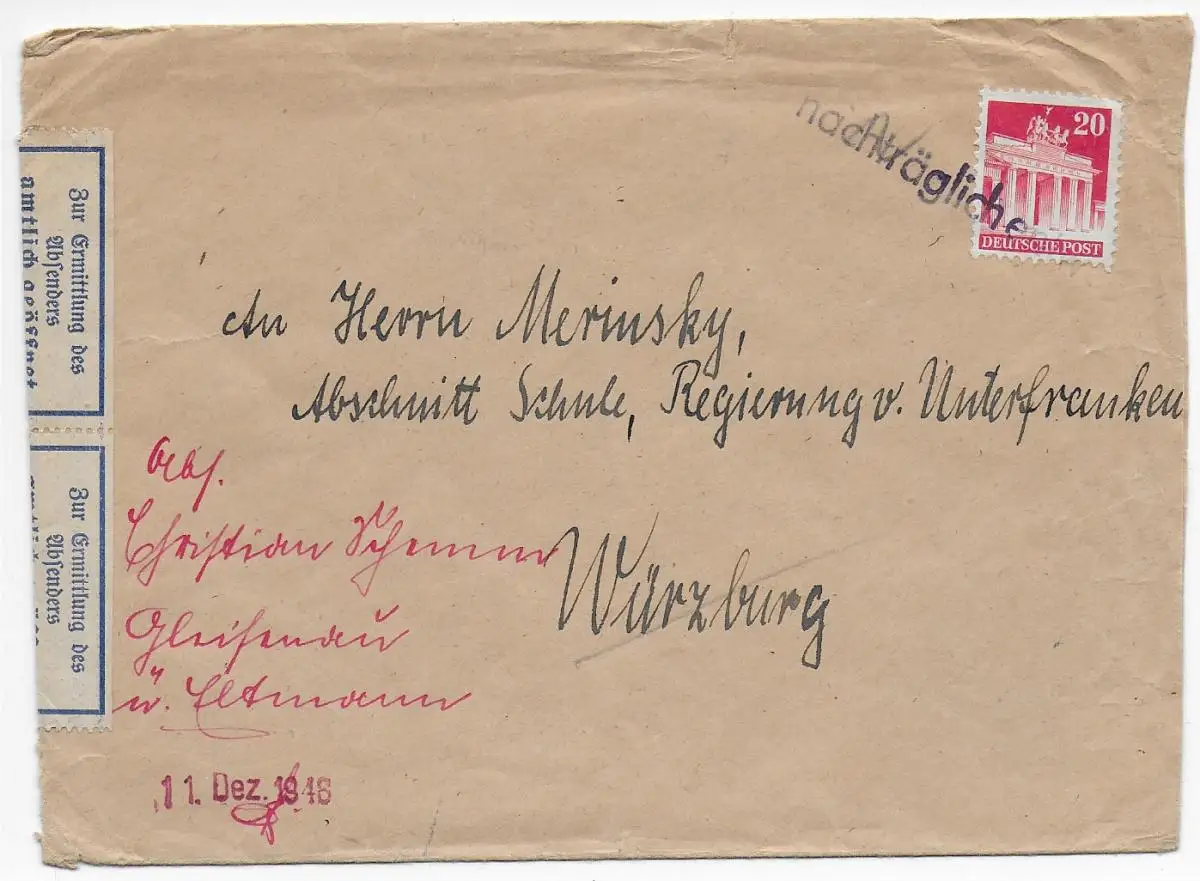 20
DEUTSCHE POST
nachträglich
An Herrn Merinsky,
Abschnitt Schule, Regierung v. Unterfranken
Würzburg
Abs.
Christian Schemm
Gleisenau
ü. Eltmann
11. Dez. 1948
Zur Ermittlung des
Absenders
amtlich geöffnet
Zur Ermittlung des
Absenders